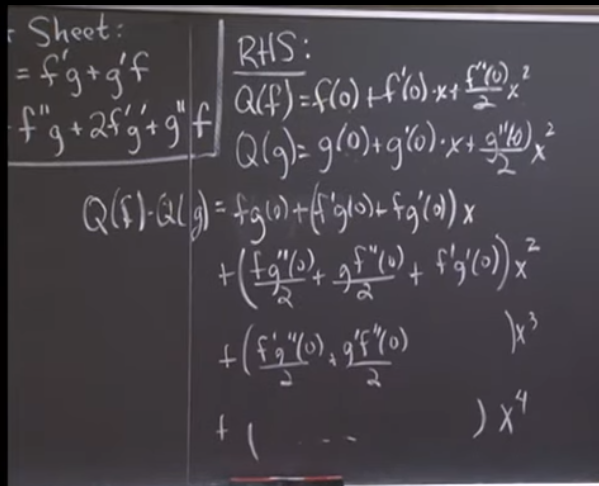 Sheet:
= f'g + g'f
f''g + 2f'g' + g''f
RHS:
Q(f) = f(0) + f'(0)·x + f''(0)/2 x²
Q(g) = g(0) + g'(0)·x + g''(0)/2 x²
Q(f)·Q(g) = fg(0) + (f'g(0) + fg'(0)) x
+ (fg''(0)/2 + gf''(0)/2 + f'g'(0)) x²
+ (f'g''(0)/2 + g'f''(0)/2 ) x³
+ ( ... ) x⁴